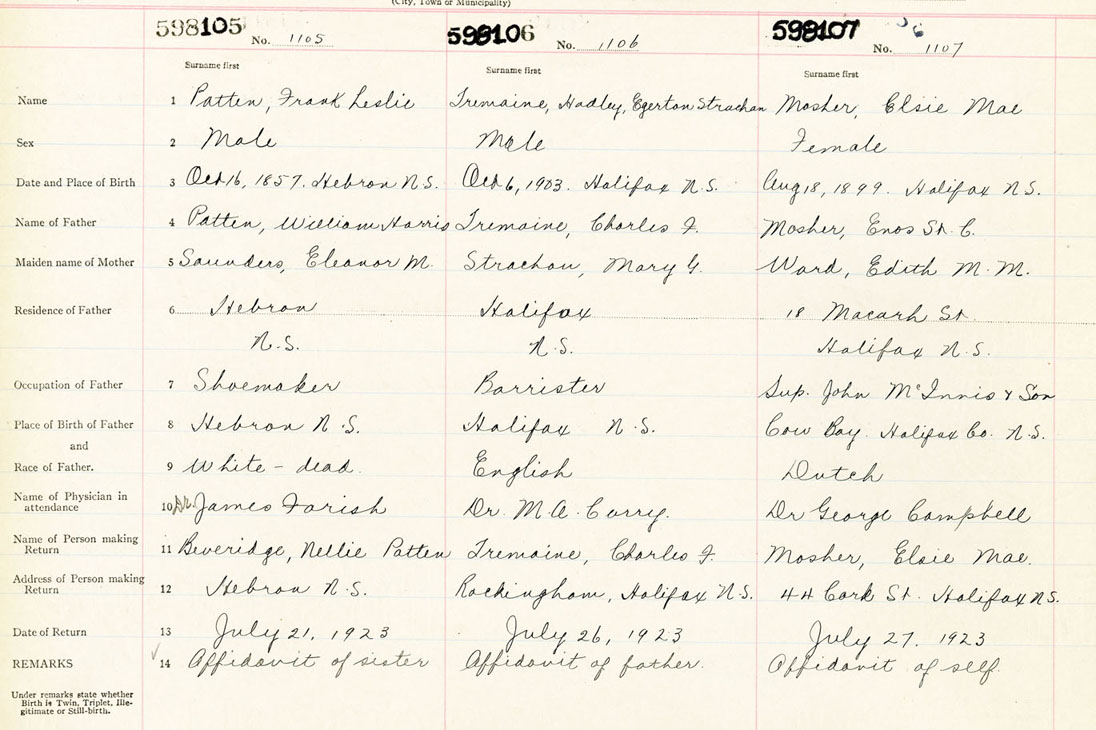 (City, Town or Municipality)
598105 No. 1105 598106 No. 1106 598107 No. 1107
Surname first Surname first Surname first
Name 1 Patten, Frank Leslie Tremaine, Hadley, Egerton Strachan Mosher, Elsie Mae
Sex 2 Male Male Female
Date and Place of Birth 3 Oct 16, 1857. Hebron N.S. Oct 6, 1903. Halifax N.S. Aug 18, 1899. Halifax N.S.
Name of Father 4 Patten, William Harris Tremaine, Charles F. Mosher, Enos St. C.
Maiden name of Mother 5 Saunders, Eleanor M. Strachan, Mary G. Ward, Edith M. M.
Residence of Father 6 Hebron Halifax 18 St.
N.S. N.S. Halifax N.S.
Occupation of Father 7 Shoemaker Barrister Sup. John McInnis & Son
Place of Birth of Father 8 Hebron N.S. Halifax N.S. Cow Bay Halifax Co. N.S.
and
Race of Father. 9 White - dead. English Dutch
Name of Physician in
attendance 10 Dr. James Farish Dr. M.A. Curry. Dr George Campbell
Name of Person making
Return 11 Beveridge, Nellie Patten Tremaine, Charles F. Mosher, Elsie Mae.
Address of Person making
Return 12 Hebron N.S. Rockingham, Halifax N.S. 44 Cork St. Halifax N.S.
Date of Return 13 July 21, 1923 July 26, 1923 July 27, 1923
REMARKS 14 Affidavit of sister Affidavit of father. Affidavit of self.
Under remarks state whether
Birth is Twin, Triplet, Ille-
gitimate or Still-birth.